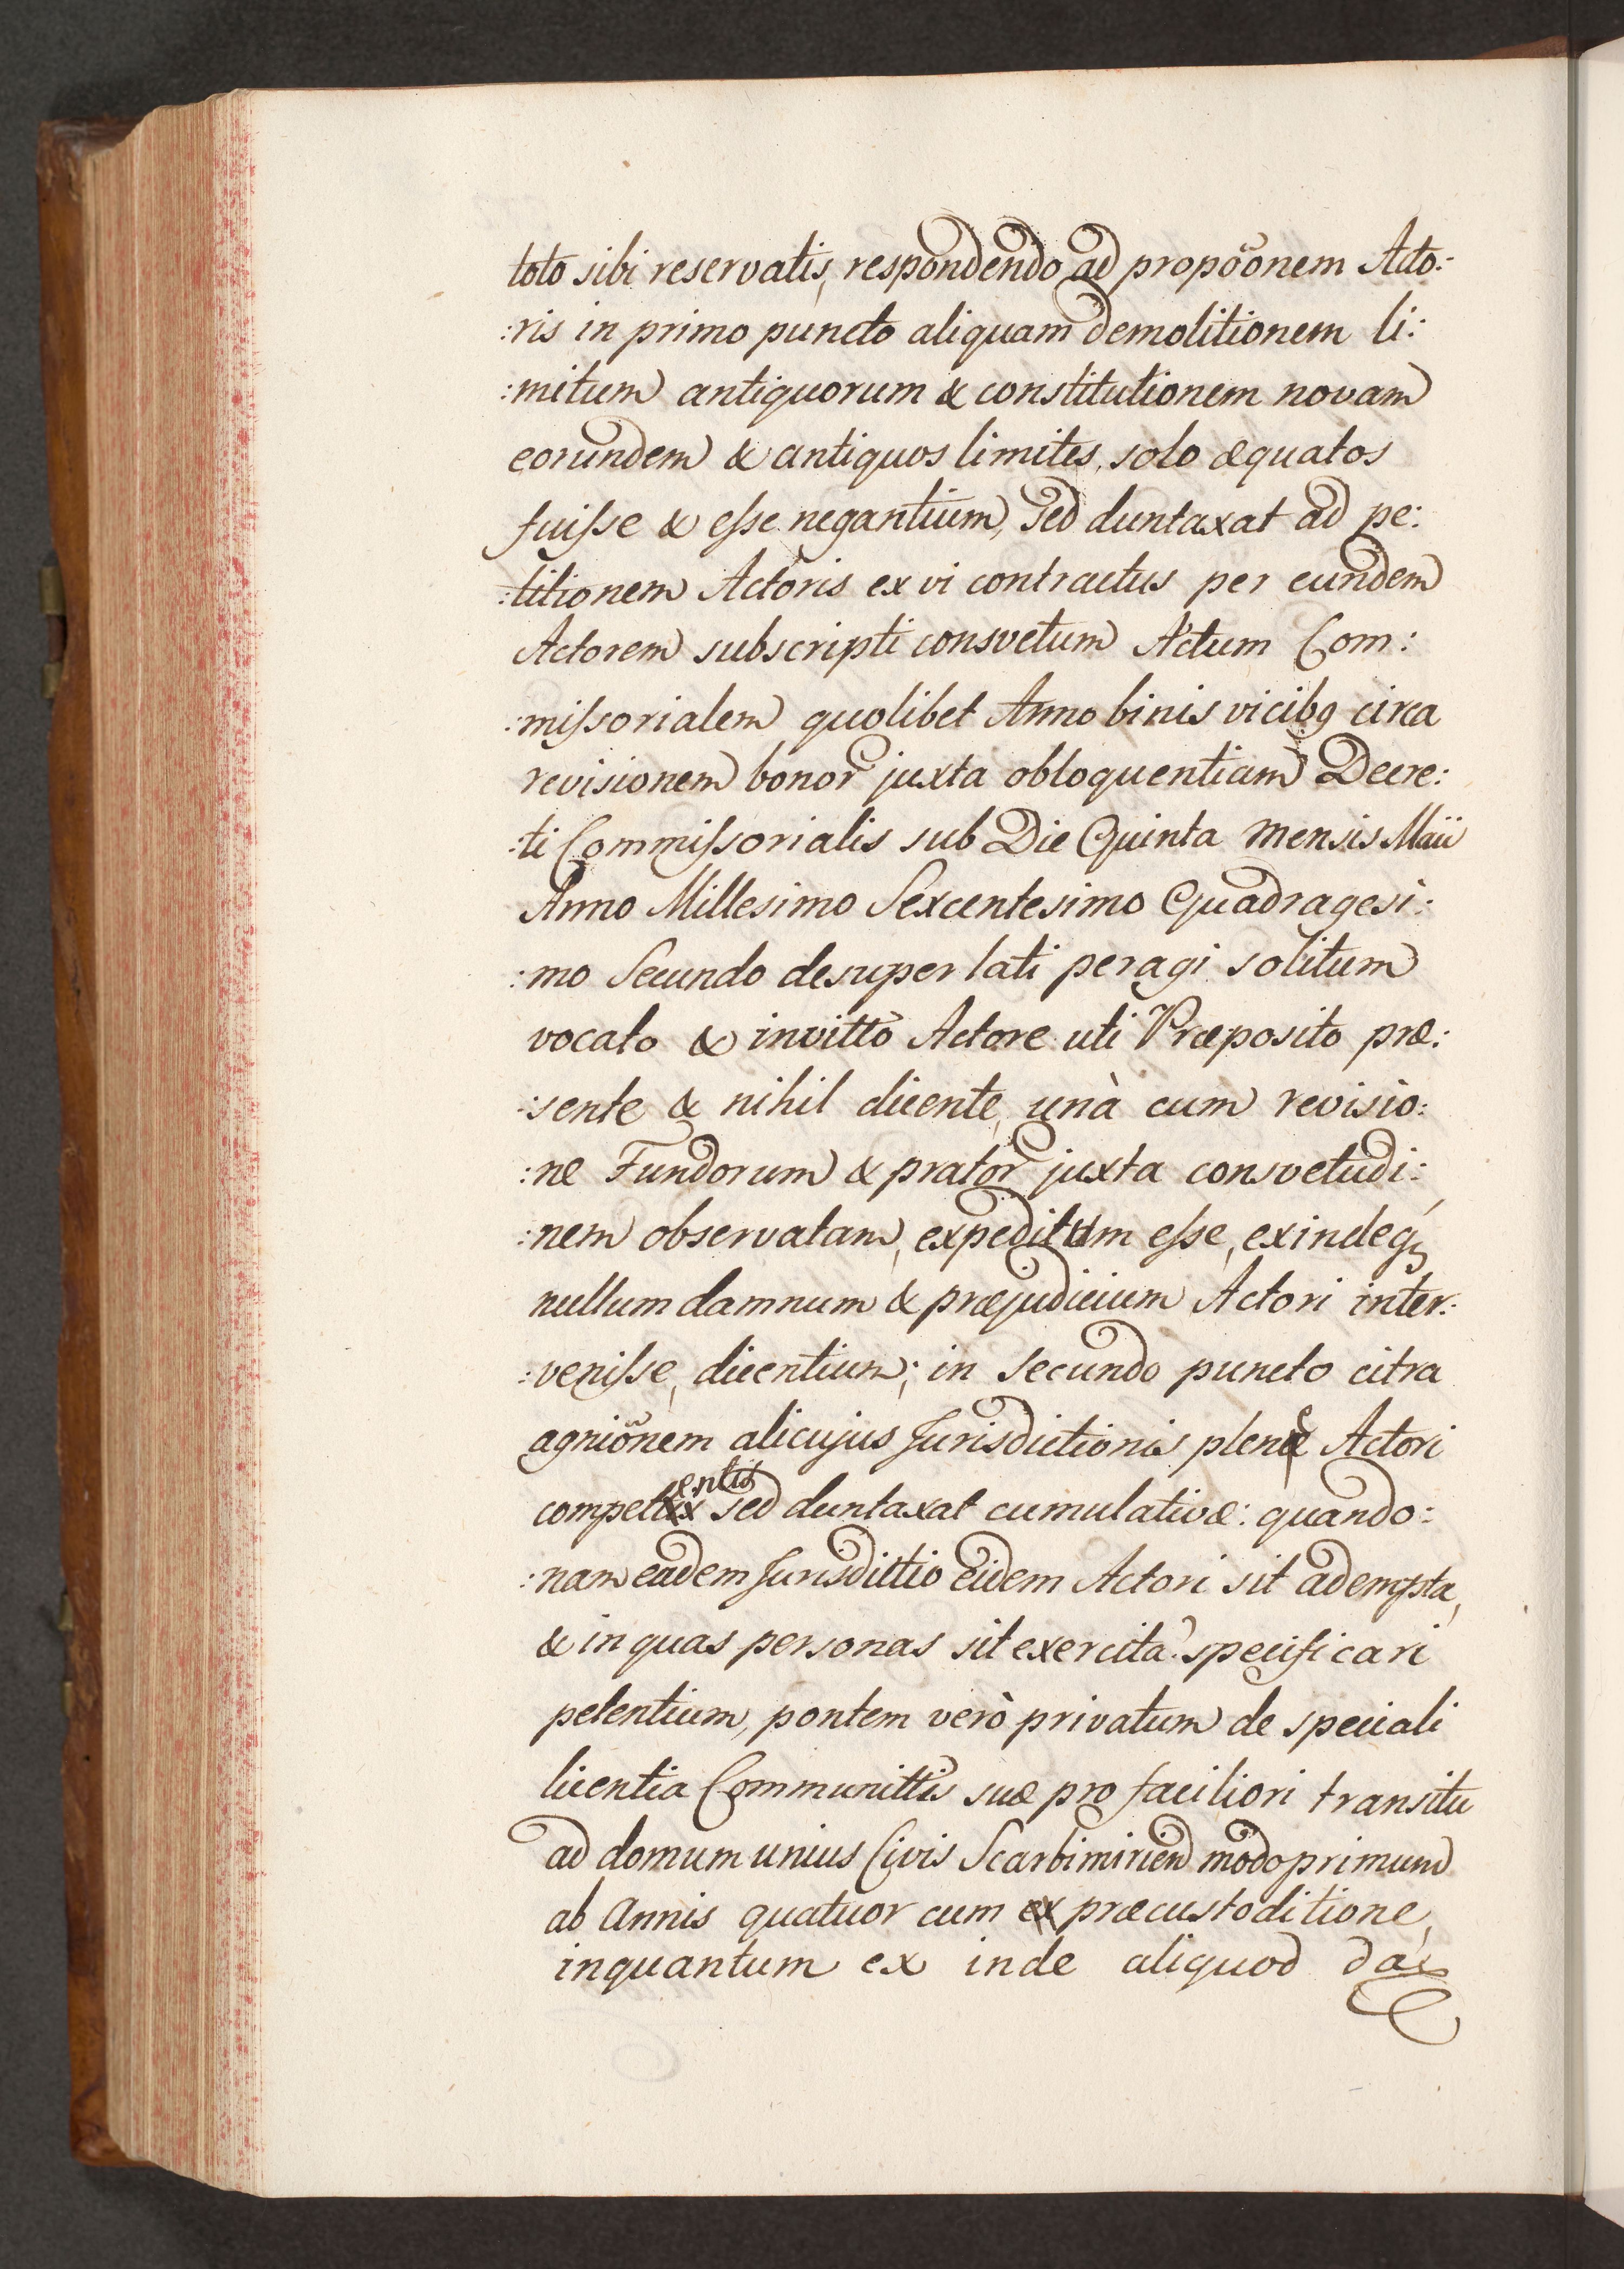 toto sibi reservatis, respondendo ad propōonem Acto:
:ris in primo puncto aliquam demolitionem li:
:mitum antiquorum & constitutionem novam
eorundem & antiquos limites solo æquatos
fuisse & esse negantium, sed duntaxat ad pe:
:titionem Actoris ex vi contractus per eundem
Actorem subscripti consvetum Actum Com:
:missorialem quolibet Anno binis vicibq circa
revisionem bonor juxta obloquentiam Decre:
:ti Commissorialis sub Die Quinta mensis Maii
Anno Millesimo Sexcentesimo Quadragesi:
:mo Secundo desuper lati peragi solitum
vocato & invitto Actore uti Præposito præ:
:sente & nihil dicente, unà cum revisio:
:ne Fundorum & prator juxta consvetudi:
:nem observatam, expeditum esse, exindeq,
nullum damnum & præjudicium Actori inter:
:venisse, dicentium; in secundo puncto citra
agniōnem alicujus Jurisdictionis plenè Actori
competentis sed duntaxat cumulativæ: quando:
:nam eadem Jurisdittio eidem Actori sit adempta,
& in quas personas sit exercita? specificari
petentium, pontem verò privatum de speciali
licentia Communittis suæ pro faciliori transitu
ad domum unius Civis Scarbimirien modo primum
ab Annis quatuor cum præcustoditione,
inquantum ex inde aliquod da: